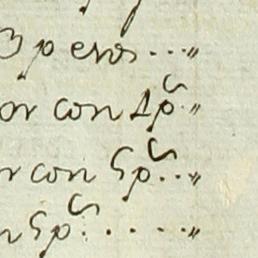 3 p eros...〃
or con 1 ps..〃
r con 5 ps...〃
n 5 ps.....〃